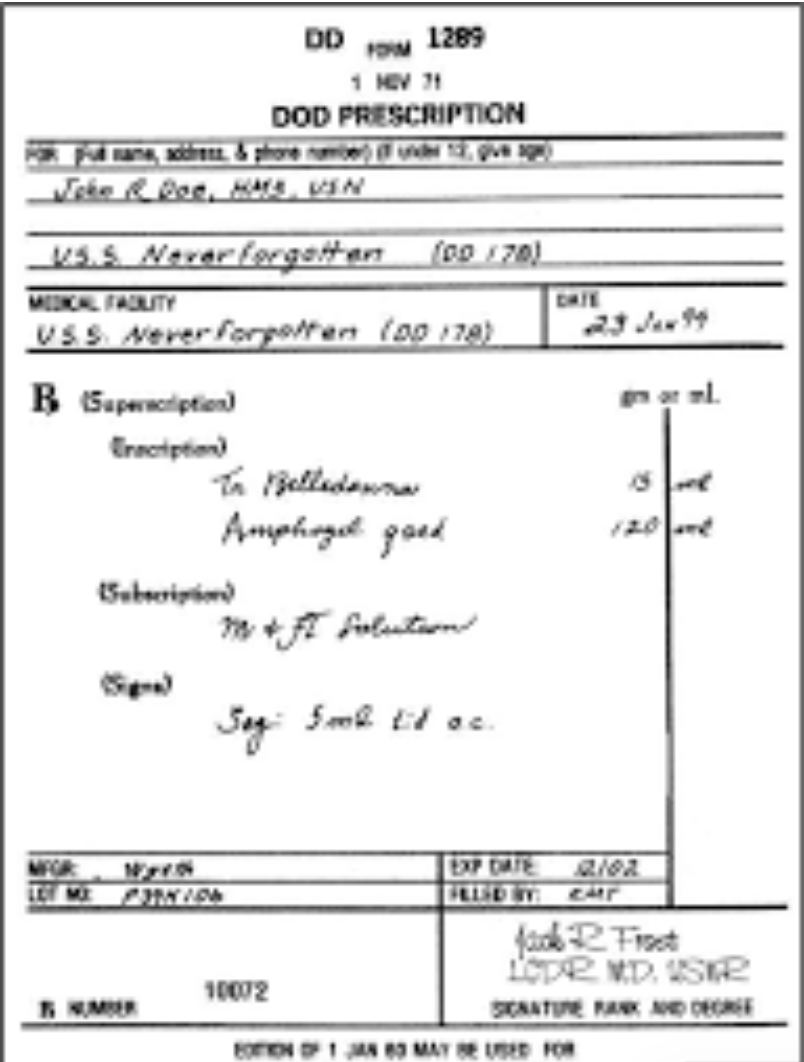 DD FORM 1289
1 NOV 71
DOD PRESCRIPTION
FOR (Full name, address, & phone number) (If under 12, give age)
John R Doe, HM3, USN
U.S.S. Neverforgotten (DD 178)
MEDICAL FACILITY
U.S.S. Neverforgotten (DD 178)
DATE
23 Jan 99
℞ (Superscription)
gm or ml.
(Inscription)
Tr Belladonna 15 ml
Amphogel qsad 120 ml
(Subscription)
M & FT Solution
(Signa)
Sig: 5 ml tid a.c.
MFGR: Wyeth
EXP DATE: 12/02
LOT NO: P39K106
FILLED BY:
Jack R Frost
LCDR MD. USNR
℞ NUMBER 10072
SIGNATURE RANK AND DEGREE
EDITION OF 1 JAN 60 MAY BE USED FOR